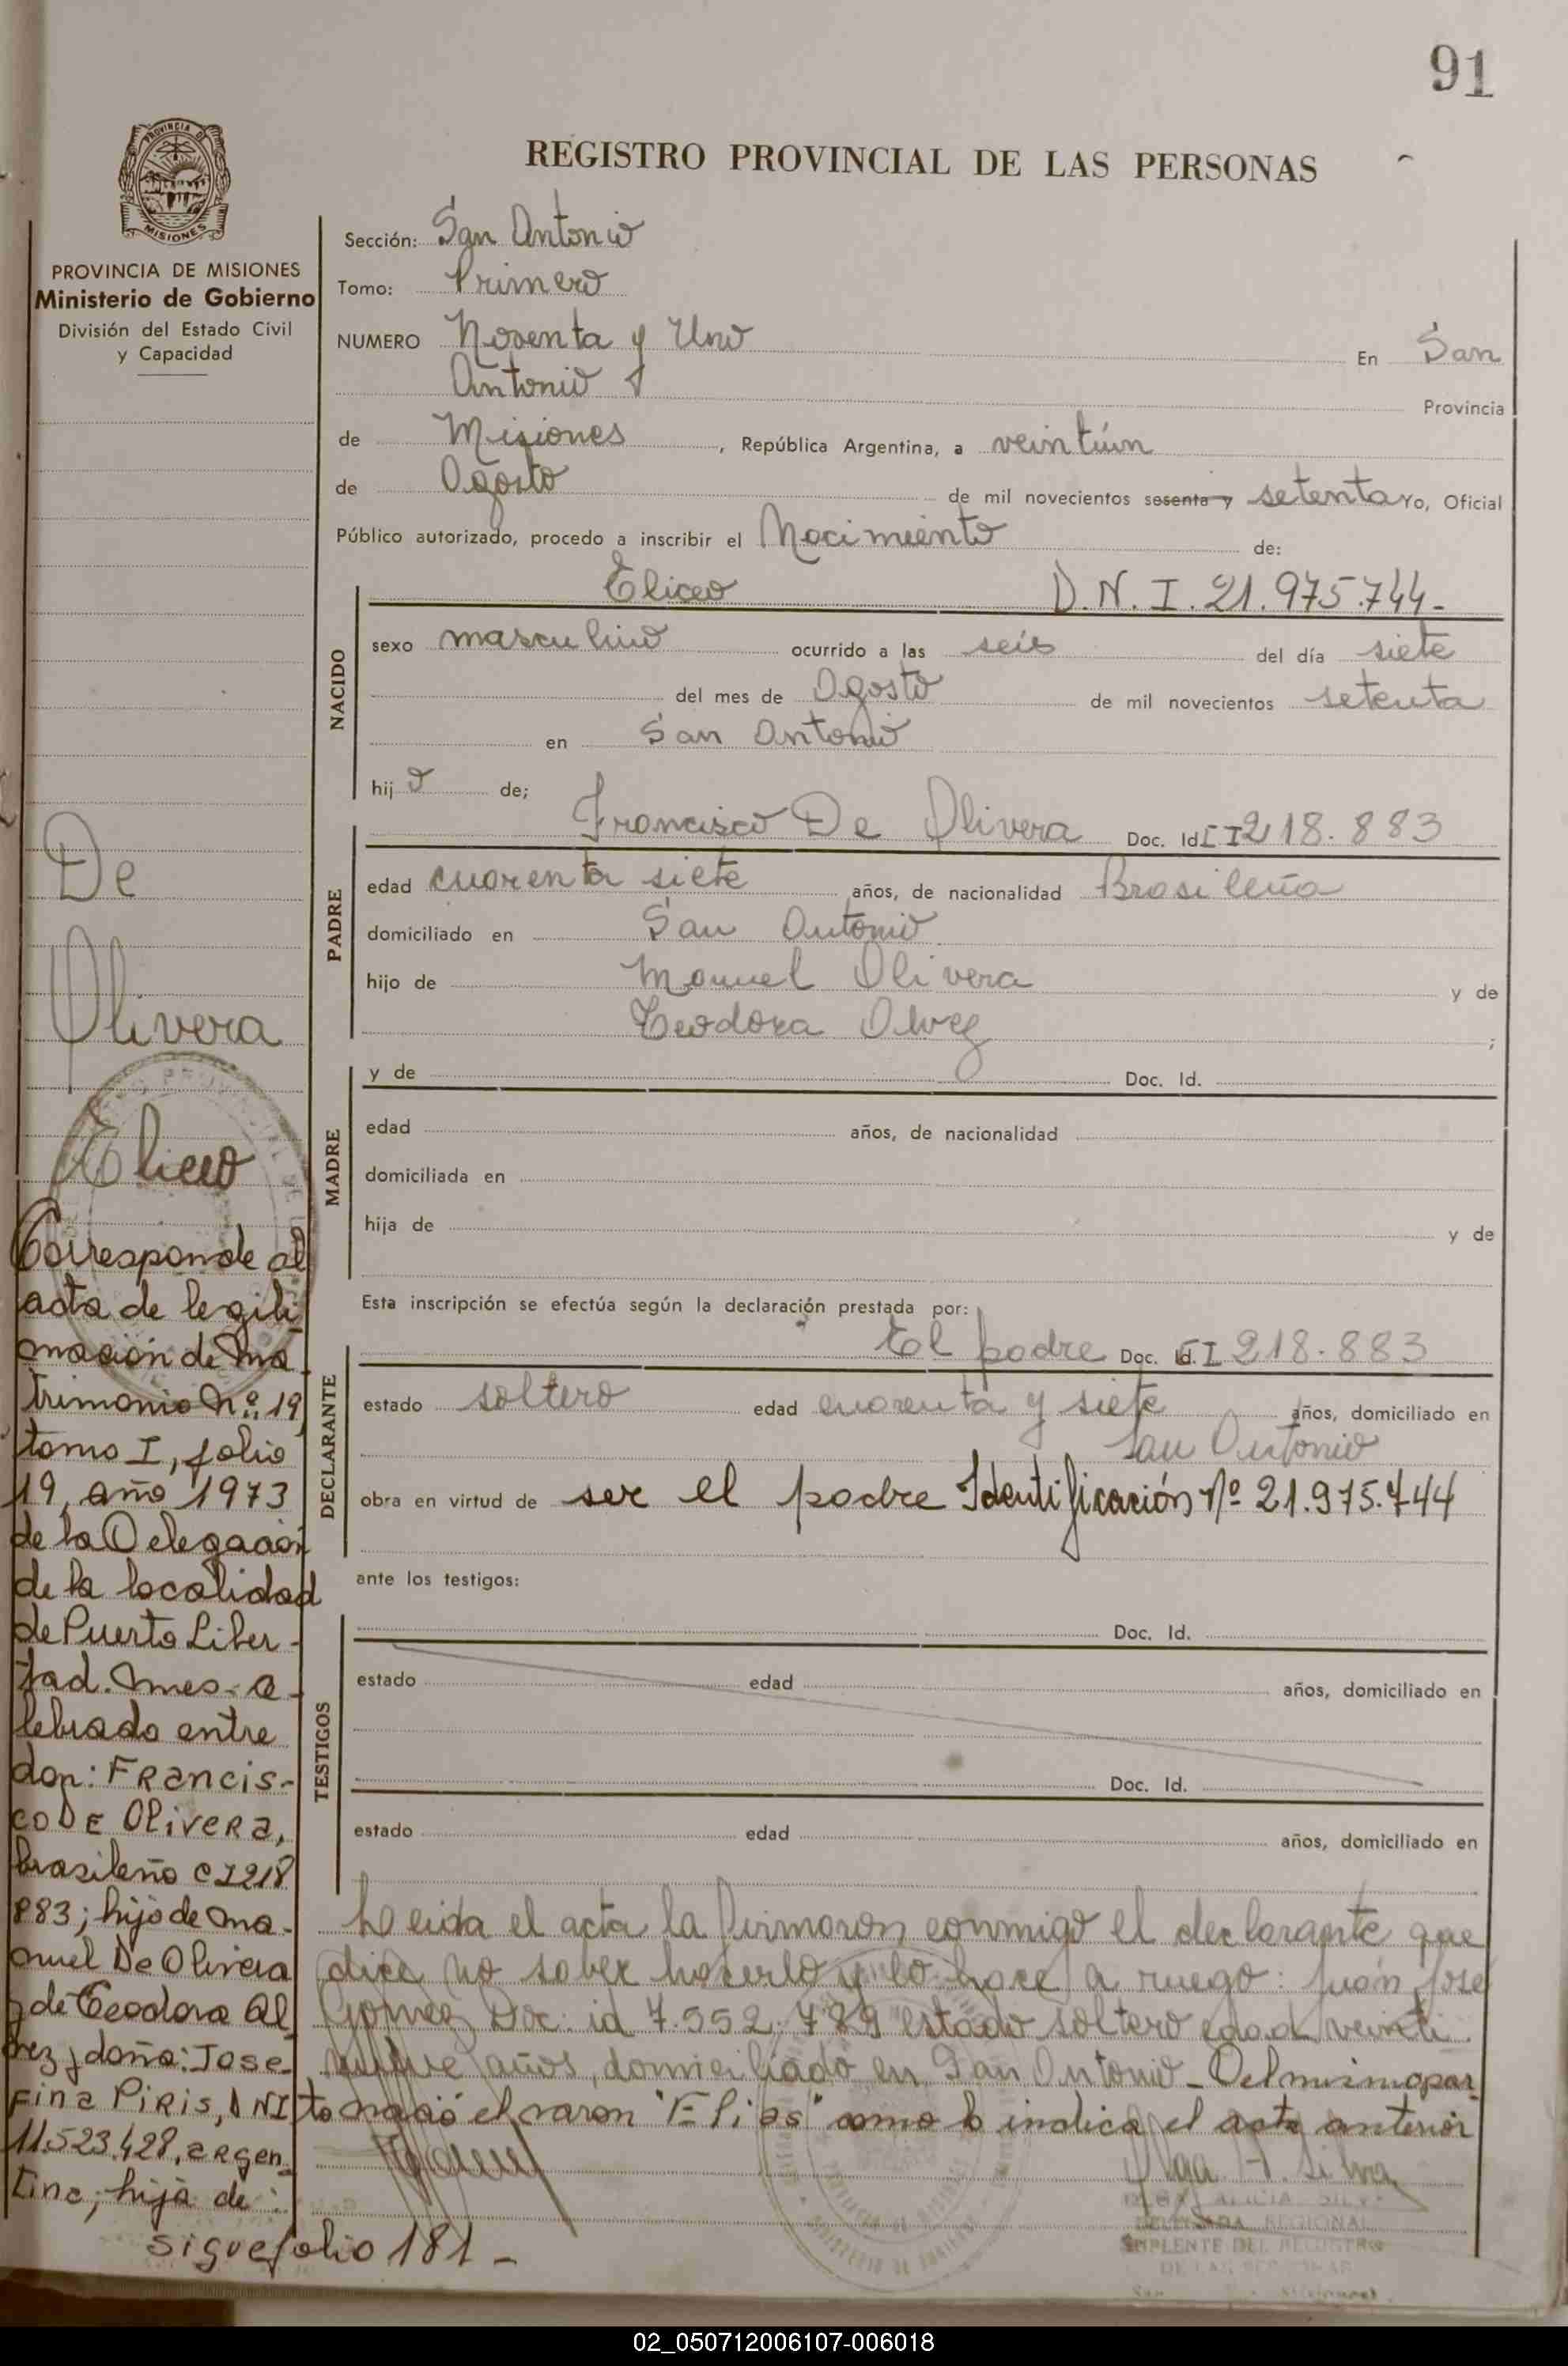 91
REGISTRO PROVINCIAL DE LAS PERSONAS
PROVINCIA DE
MISIONES
PROVINCIA DE MISIONES
Ministerio de Gobierno
División del Estado Civil
y Capacidad
Sección: San Antonio
Tomo: Primero
NUMERO Noventa y Uno En San
Antonio Provincia
de Misiones, República Argentina, a veintiún
de Agosto de mil novecientos sesenta y setenta Yo, Oficial
Público autorizado, procedo a inscribir el Nacimiento de:
NACIDO
Eliceo D.N.I. 21.975.744-
sexo masculino ocurrido a las seis del día siete
del mes de Agosto de mil novecientos setenta
en San Antonio
hijo de;
PADRE
Francisco De Olivera Doc. Id C I 218.883
edad cuarenta siete años, de nacionalidad Brasileña
domiciliado en San Antonio
hijo de Manuel Olivera y de
Teodora Alvez ;
MADRE
y de Doc. Id.
edad años, de nacionalidad
domiciliada en
hija de y de
Esta inscripción se efectúa según la declaración prestada por:
DECLARANTE
El padre Doc. Id. C I 218.883
estado soltero edad cuarenta y siete años, domiciliado en
San Antonio
obra en virtud de ser el padre Identificación Nº 21.975.744
ante los testigos:
TESTIGOS
Doc. Id.
estado edad años, domiciliado en
Doc. Id.
estado edad años, domiciliado en
Leida el acta la firmaron conmigo el declarante que
dice no saber hacerlo y lo hace a ruego: Juan Jose
Gomez Doc. id 7.552.789 estado soltero edad veinti
nueve años, domiciliado en San Antonio - Del mismo par
to nació el varon "Elias" como lo indica el acta anterior
Olga A. Silva
OLGA ALICIA SILVA
DELEGADA REGIONAL
SUPLENTE DEL REGISTRO
DE LAS PERSONAS
De
Olivera
Eliceo
Corresponde al
acta de legiti
mación de ma
trimonio Nº 19
tomo I, folio
19, año 1973
de la Delegación
de la localidad
de Puerto Liber-
tad. Mnes. ce-
lebrado entre
don: Francis-
co De Olivera,
brasileño C I 218
883; hijo de Ma-
nuel De Olivera
y de Teodora Al
vez y doña: Jose-
fina Piris, DNI
11.523.428, argen
tina; hija de:
sigue folio 181 -
02_050712006107-006018